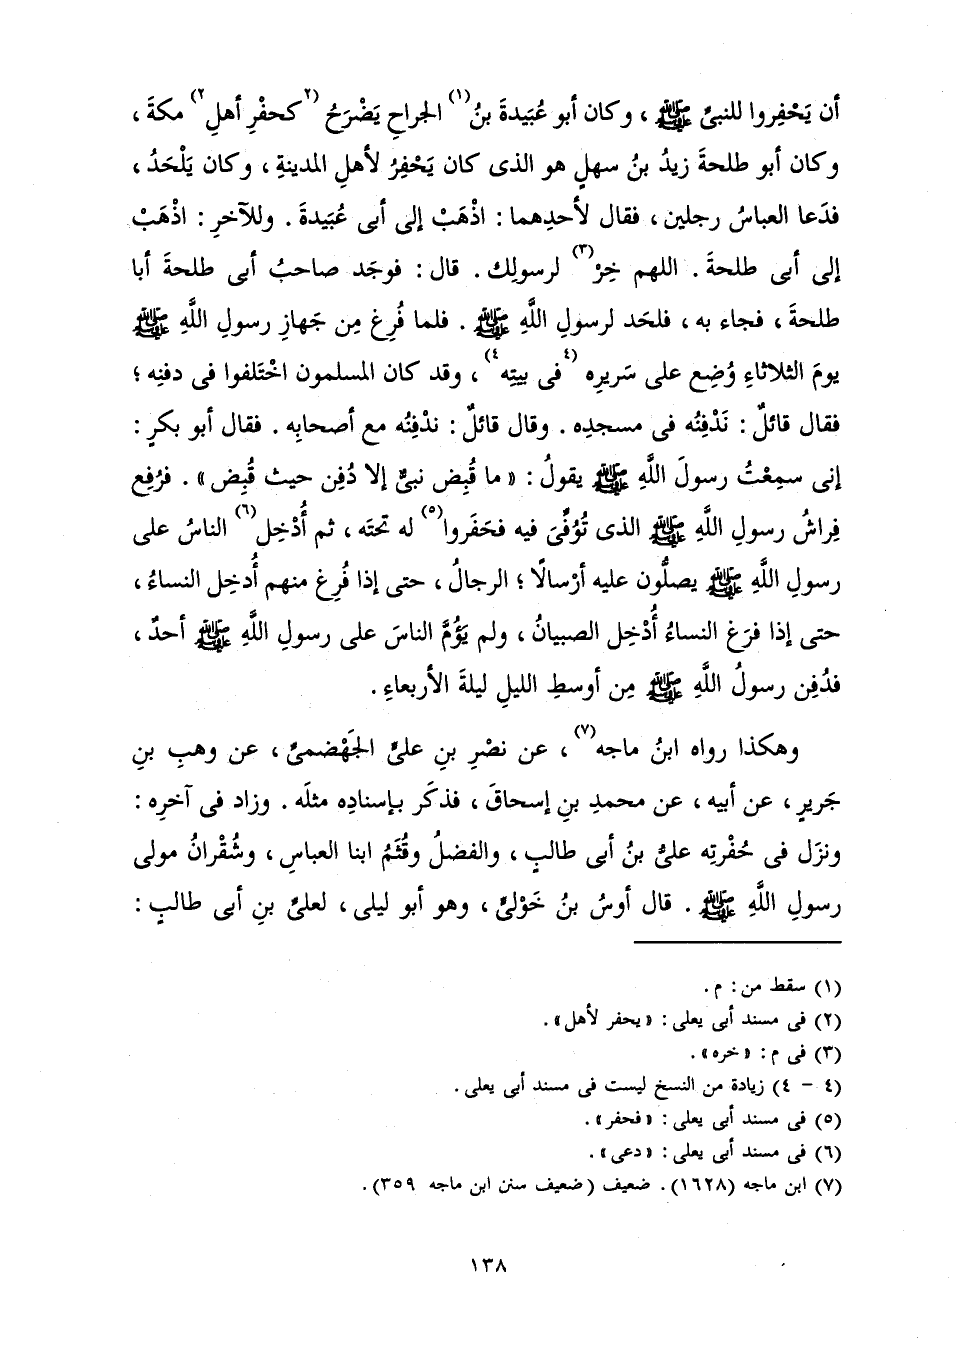 أن يَحْفِروا للنبىِّ ﷺ ، وكان أبو عُبَيدةَ بنُ(١) الجراحِ يَضْرَحُ (٢كحفْرِ أهلِ٢) مكةَ ،
وكان أبو طلحةَ زيدُ بنُ سهلٍ هو الذى كان يَحْفِرُ لأهلِ المدينةِ ، وكان يَلْحَدُ ،
فدَعا العباسُ رجلين ، فقال لأحدِهما : اذْهَبْ إلى أبى عُبَيدةَ . وللآخرِ : اذْهَبْ
إلى أبى طلحةَ . اللهم خِرْ(٣) لرسولِك . قال : فوجَد صاحبُ أبى طلحةَ أبا
طلحةَ ، فجاء به ، فلحَد لرسولِ اللَّهِ ﷺ . فلما فُرِغ مِن جَهازِ رسولِ اللَّهِ ﷺ
يومَ الثلاثاءِ وُضِع على سَريرِه (٤فى بيتِه٤) ، وقد كان المسلمون اخْتَلفوا فى دفنِه ؛
فقال قائلٌ : نَدْفِنُه فى مسجدِه . وقال قائلٌ : ندْفِنُه مع أصحابِه . فقال أبو بكرٍ :
إنى سمِعْتُ رسولَ اللَّهِ ﷺ يقولُ : « ما قُبِض نبىٌّ إلا دُفِن حيث قُبِض » . فرُفِع
فِراشُ رسولِ اللَّهِ ﷺ الذى تُوُفِّىَ فيه فحَفَروا(٥) له تحتَه ، ثم أُدْخِل(٦) الناسُ على
رسولِ اللَّهِ ﷺ يصلُّون عليه أرْسالًا ؛ الرجالُ ، حتى إذا فُرِغ منهم أُدخِل النساءُ ،
حتى إذا فرَغ النساءُ أُدْخِل الصبيانُ ، ولم يَؤُمَّ الناسَ على رسولِ اللَّهِ ﷺ أحدٌ ،
فدُفِن رسولُ اللَّهِ ﷺ مِن أوسطِ الليلِ ليلةَ الأربعاءِ .
وهكذا رواه ابنُ ماجه(٧) ، عن نصْرِ بنِ علىٍّ الجَهْضمىِّ ، عن وهبِ بنِ
جَريرٍ ، عن أبيه ، عن محمدِ بنِ إسحاقَ ، فذكَر بإسنادِه مثلَه . وزاد فى آخرِه :
ونزَل فى حُفْرتِه علىُّ بنُ أبى طالبٍ ، والفضلُ وقُثَمُ ابنا العباسِ ، وشُقْرانُ مولى
رسولِ اللَّهِ ﷺ . قال أوسُ بنُ خَوْلىٍّ ، وهو أبو ليلى ، لعلىِّ بنِ أبى طالبٍ :
(١) سقط من : م .
(٢) فى مسند أبى يعلى : « يحفر لأهل » .
(٣) فى م : « خره » .
(٤ - ٤) زيادة من النسخ ليست فى مسند أبى يعلى .
(٥) فى مسند أبى يعلى : « فحفر » .
(٦) فى مسند أبى يعلى : « دعى » .
(٧) ابن ماجه (١٦٢٨) . ضعيف (ضعيف سنن ابن ماجه ٣٥٩) .
١٣٨